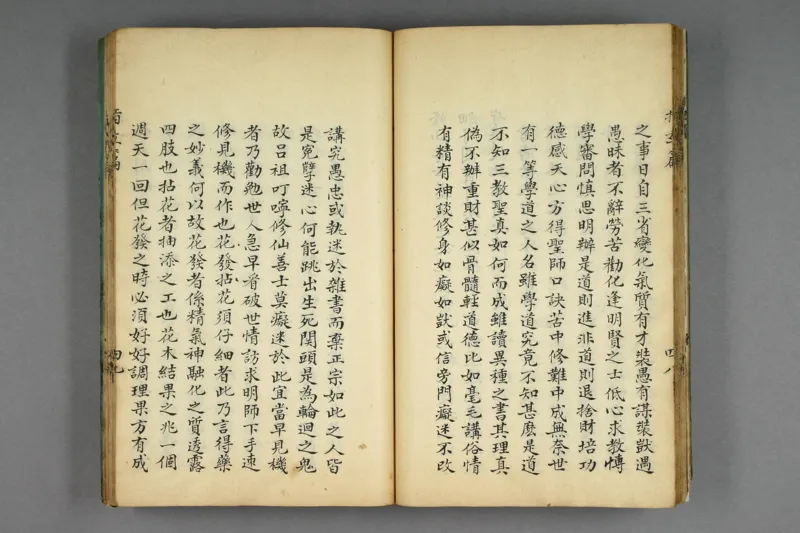 之事日自三省變化氣質有才裝愚有謀裝獃遇
愚昧者不辭勞苦勸化逢明賢之士低心求教慱
學審問慎思明辦是道則進非道則退捨財培功
德感天心方得聖師口訣苦中修難中成無奈世
有一等學道之人名雖學道究竟不知甚麽是道
不知三教聖真如何而成雖讀異種之書其理真
偽不辦重財甚似骨髓軽道德比如毫毛講俗情
有精有神談修身如癡如獃或信旁門癡迷不改
四八
講究愚忠或執迷於雜書而棄正宗如此之人皆
是冤孽迷心何能跳出生死関頭是為輪迴之鬼
故吕祖叮嚀修仙善士莫癡迷於此宜當早見機
者乃勸勉世人急早看破世情訪求明師下手速
修見機而作也花發拈花須仔細者此乃言得藥
之妙義何以故花發者係精氣神融化之質透露
四肢也拈花者抽添之工也花木結果之兆一個
週天一回但花發之時必須好好調理果方有成
四九